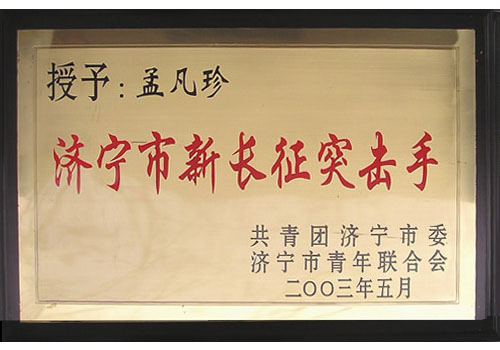 授予：孟凡珍
济宁市新长征突击手
共青团济宁市委
济宁市青年联合会
二〇〇三年五月